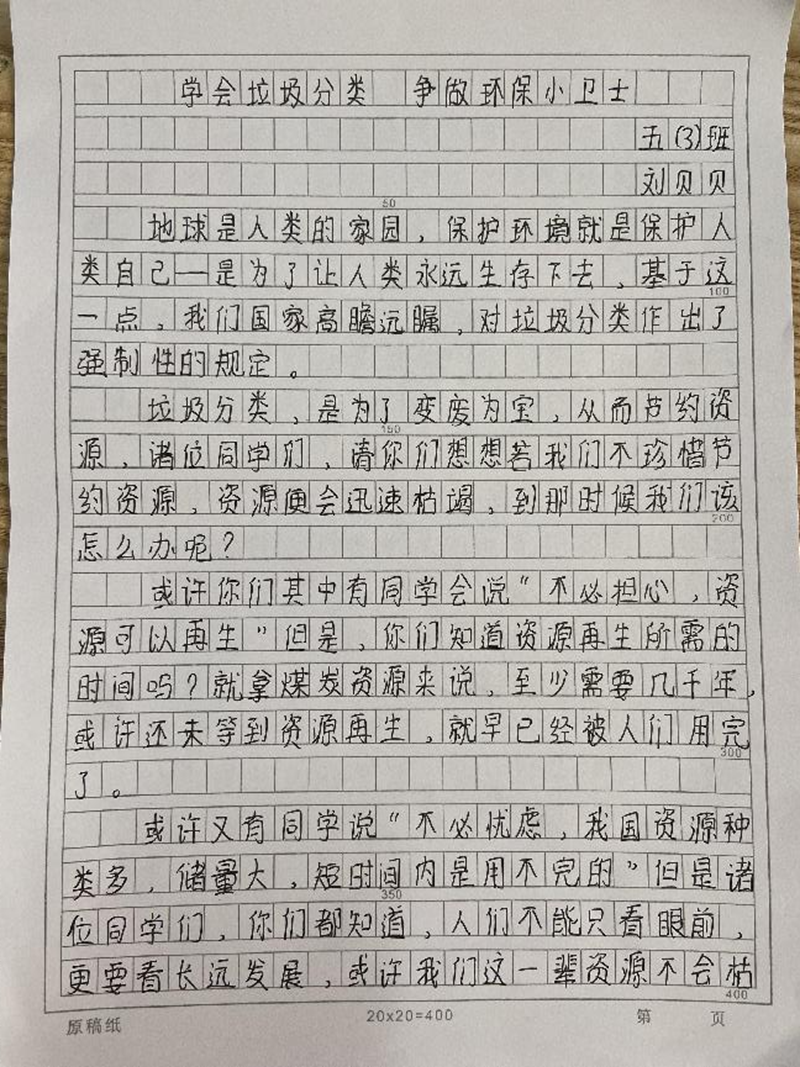 学会垃圾分类 争做环保小卫士
五(3)班
刘贝贝
50
地球是人类的家园，保护环境就是保护人
类自己——是为了让人类永远生存下去，基于这
100
一点，我们国家高瞻远瞩，对垃圾分类作出了
强制性的规定。
垃圾分类，是为了变废为宝，从而节约资
150
源，诸位同学们，请你们想想若我们不珍惜节
约资源，资源便会迅速枯竭，到那时候我们该
200
怎么办呢？
或许你们其中有同学会说“不必担心，资
源可以再生”但是，你们知道资源再生所需的
时间吗？就拿煤炭资源来说，至少需要几千年，
或许还未等到资源再生，就早已经被人们用完
300
了。
或许又有同学说“不必忧虑，我国资源种
类多，储量大，短时间内是用不完的”但是诸
350
位同学们，你们都知道，人们不能只看眼前，
更要看长远发展，或许我们这一辈资源不会枯
400
原稿纸 20x20=400 第 页